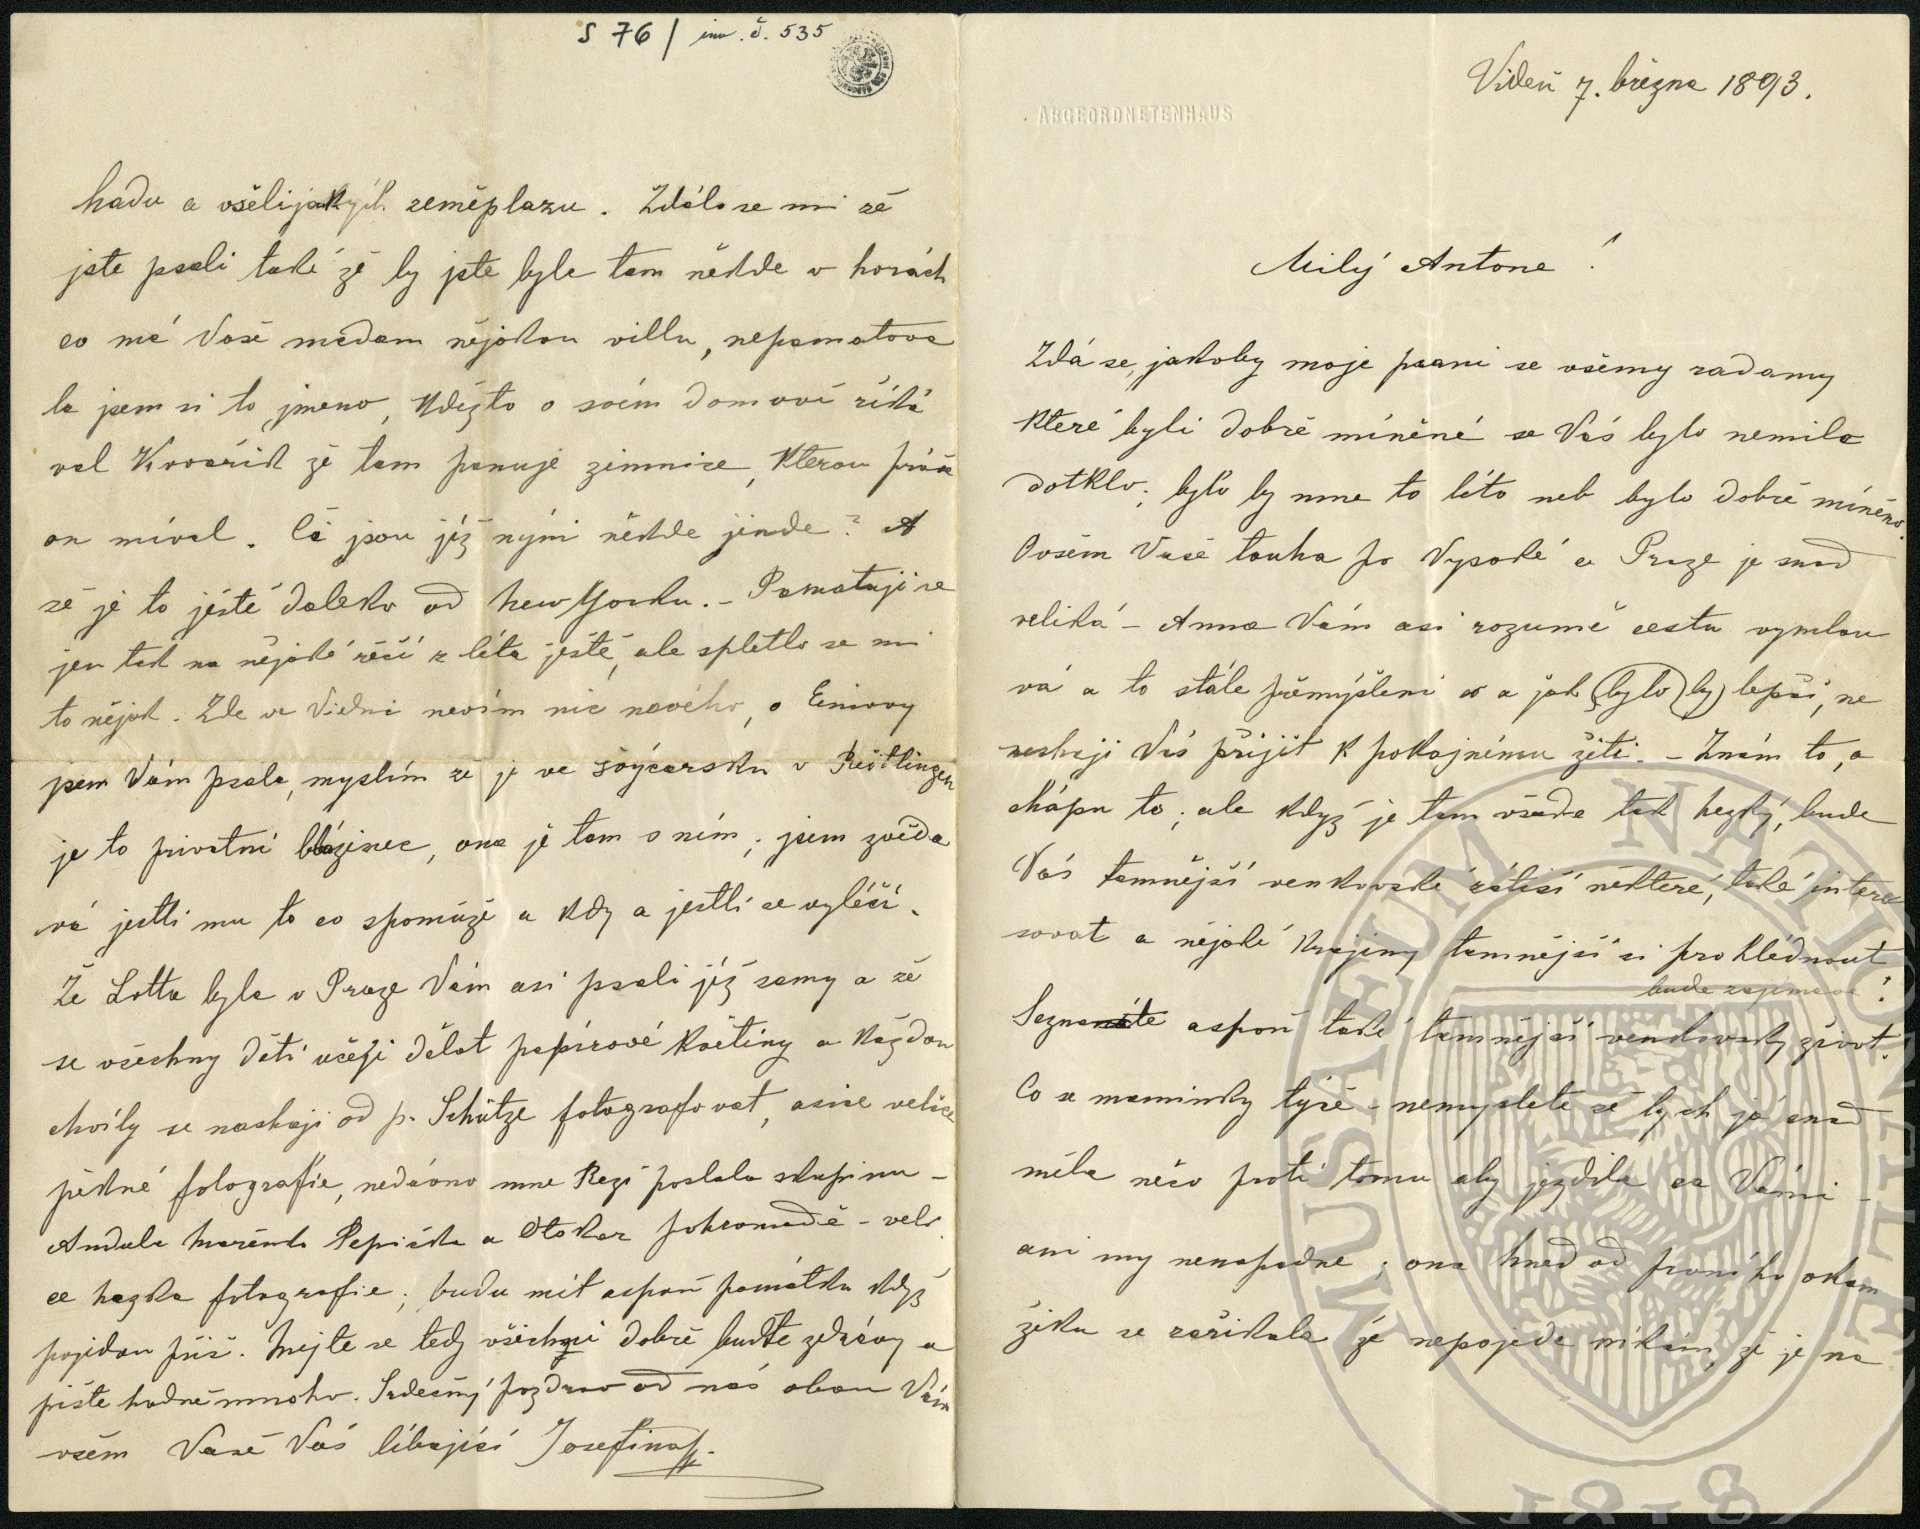 S 76 / inv. č. 535
hadu a všelijakých zeměplazu. Zdálo se mi zě
jste psali také zě by jste byle tam někde v horách
co má Vaše madam nějakou villu, nepamatova
la jsem si to jmeno, kděžto o svém domově řiká
val Kovařik žě tam panuje zimnice, kterou práva
on míval. Či jsou již nými někde jinde? A
zě je to ještě daleko od New Yorku. – Pamatuji se
jen tak na nějaké řěči z léta ještě, ale spletlo se mi
to nějak. Zde ve Vidni nevím nic nového, o Emiovy
jsem Vám psala, myslím zě je ve švýcarsku v
je to privatní blázinec, ona jě tam s ním; jsem zvěda
vá jestli mu to co spomůžě a kdy a jestli se vyléčí.
Žě Lotta byla v Praze Vám asi psali již samy a zě
se všechny děti učeji dělat papírové květiny a každou
chvíly se nechaji od p. Schütze fotografovat, asice velice
pěkné fotografie, nedávno mne Rezi poslala skupinu –
Andula Mařenka Pepička a Otokar pohromadě – veli
ce hezka fotografie; budu mít aspoň památku když
pojedou přiš. Mějte se tedy všichni dobře buďte zdrávy a
pište hodně mnoho. Srdečný pozdrav od nás obou Vám
všěm Vaše Vás líbající Josefina
ABGEORDNETENHAUS
Videň 7. března 1893.
Milý Antone!
Zdá se, jakoby moje psani se všemy radamy
které byli dobře míněné se Vás bylo nemila
dotklo; bylo by mne to líto neb bylo dobře míněno.
Ovsěm Vaše touha po Vysoké a Praze je snad
veliká – Anna Vám asi rozumě cestu vymlou
vá a to stále přěmýšleni a jak (bylo) by) lepší, ne
nechaji Vás přijít k pokojnému žiti. – Znám to, a
chápu to; ale když je tam všude tak hezky, bude
Vás tamnější venkovské zátiší některé, také intere
sovat a nějaké krajiny tamnějši si prohlédnout!
bude zajimavé
Seznaáte aspoň také tamnější venkovský život.
Co se maminky týče – nemyslete zě bych já snad
měla něco proti tomu aby jezdila za Vámi –
ani my nenapadne; ona hned od prvního okam
žiku se zařikala žě nepojede nikam, žě je na
MUSAEUM NATIONALE
1818